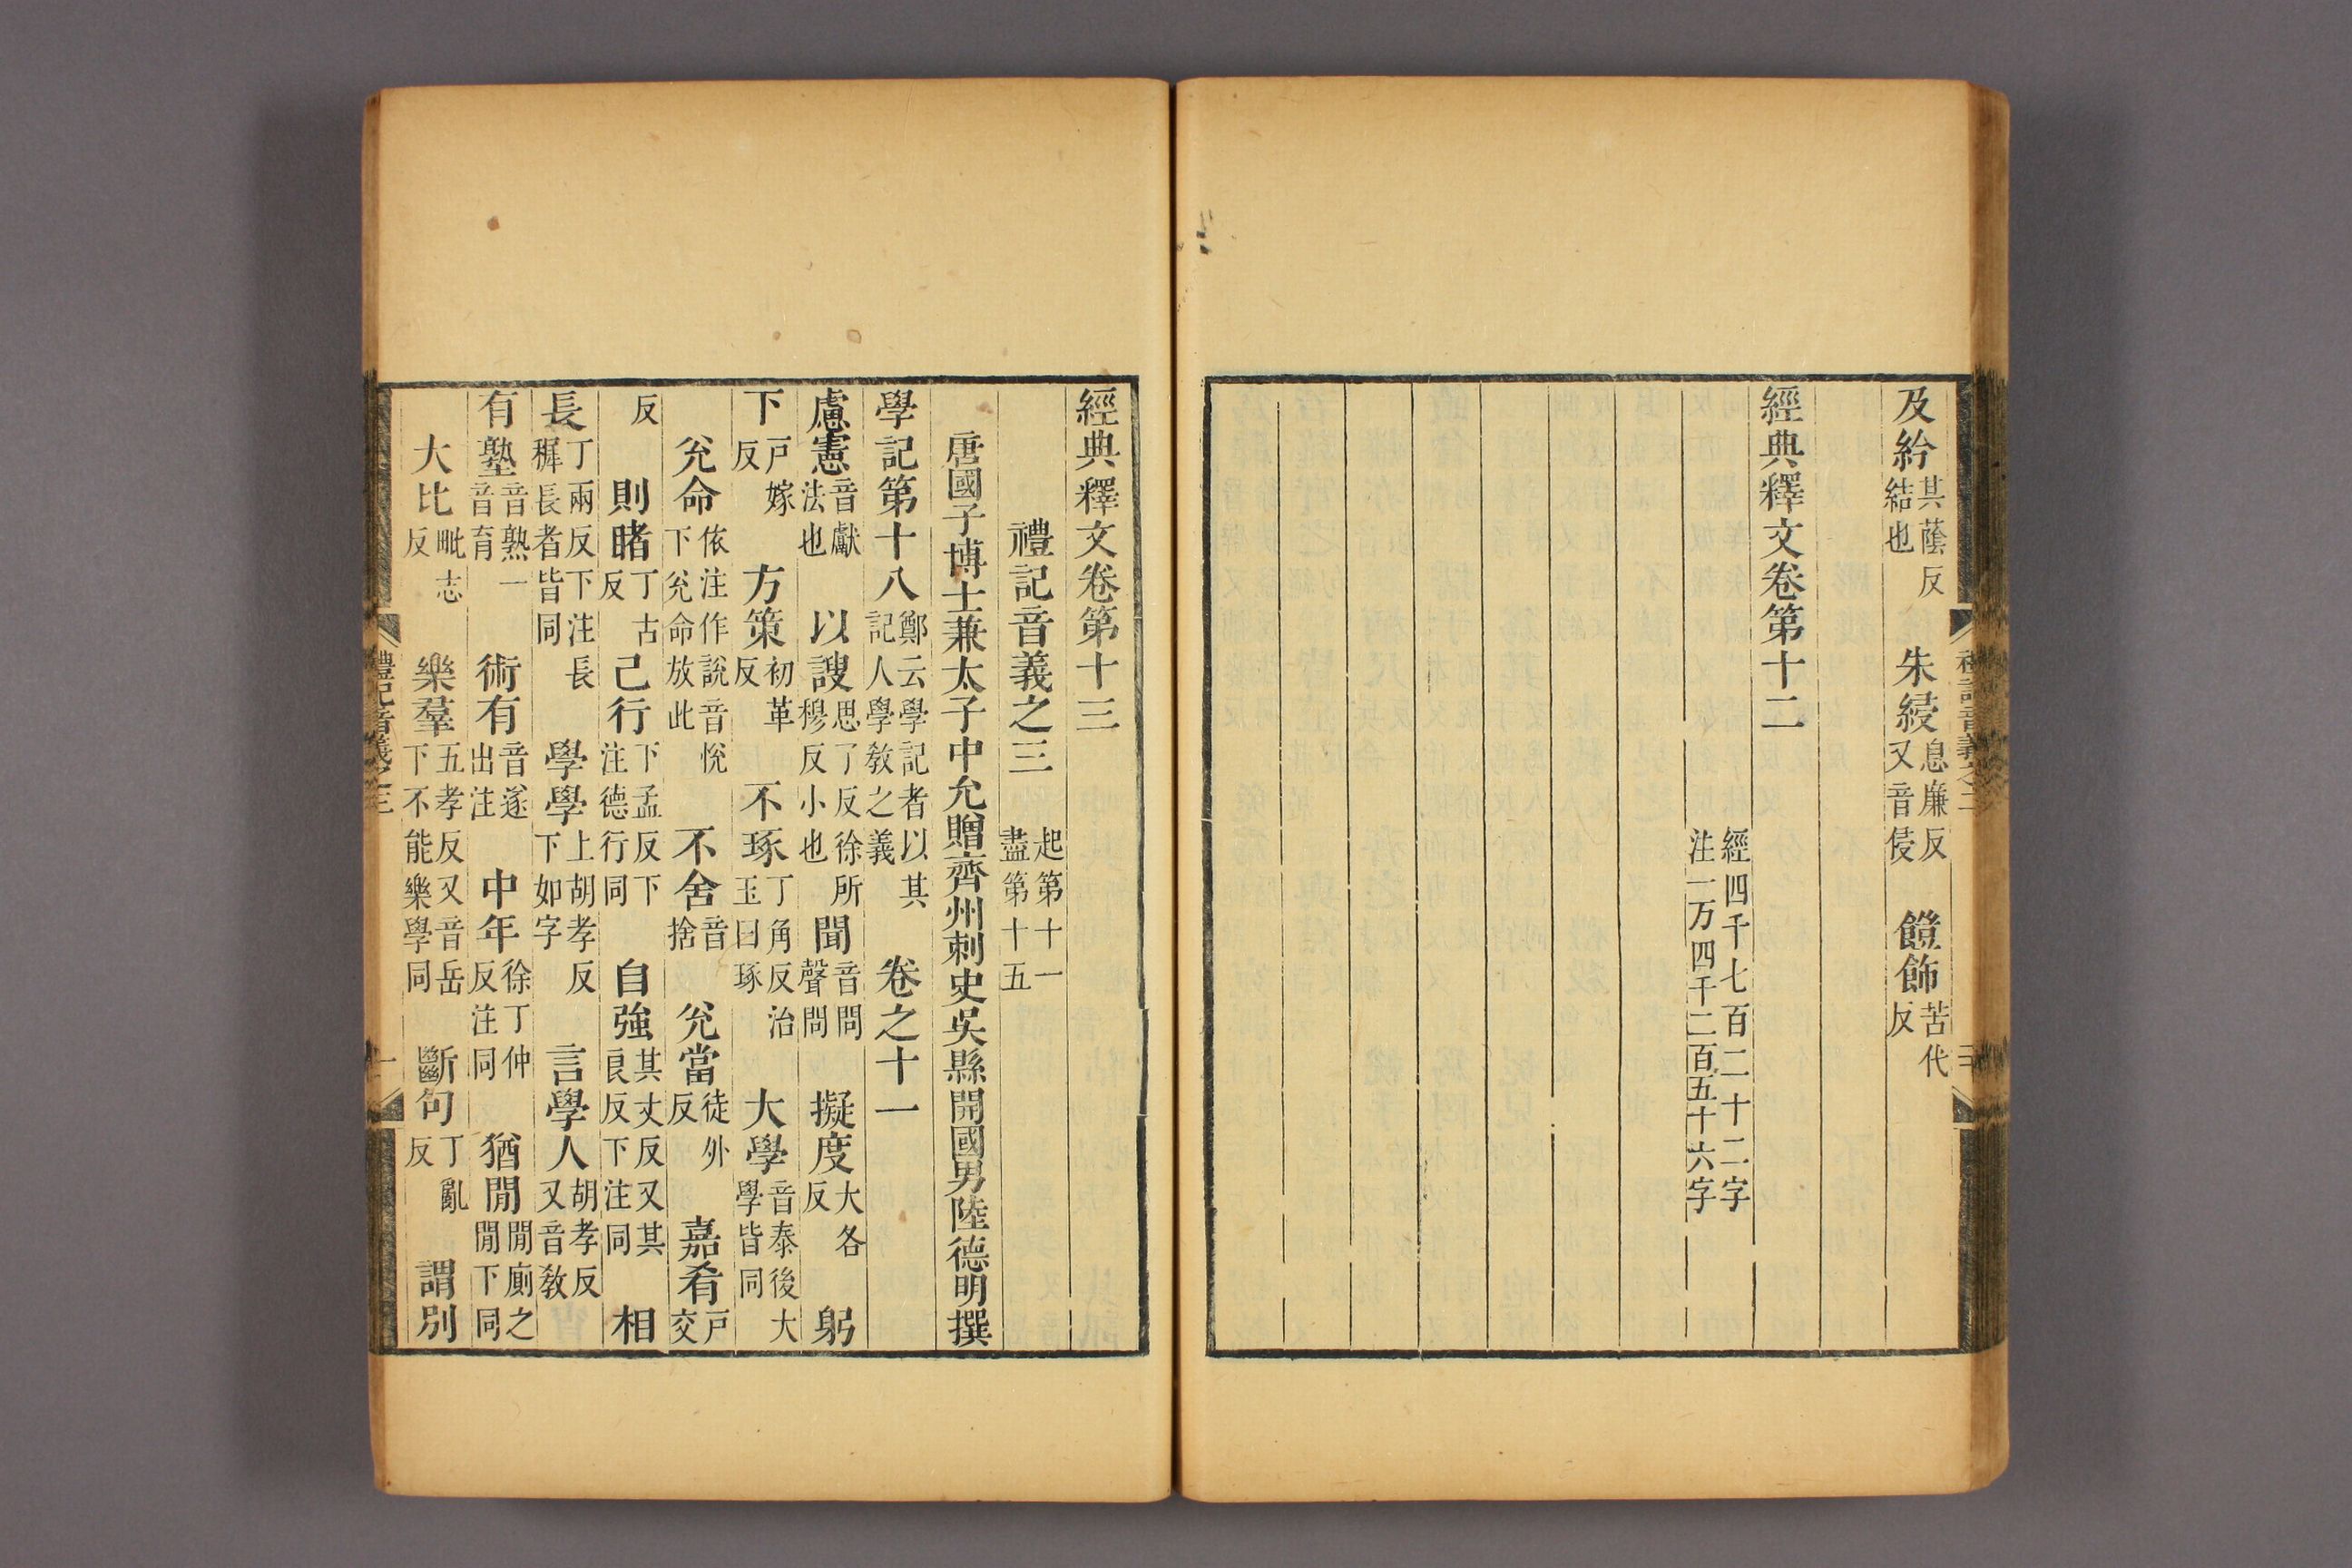 及紟其蔭反結也 朱綅息廉反又音侵 䭇飾苦代反
經典釋文卷第十二
經四千七百二十二字
注一万四千二百五十六字
經典釋文卷第十三
禮記音義之三 起第十一盡第十五
唐國子博士兼太子中允贈齊州刺史吳縣開國男陸德明撰
學記第十八鄭云學記者以其記人學敎之義 卷之十一
慮憲音獻法也 以謏思了反徐所穆反小也 聞音問聲問 擬度大各反 躬
下戸嫁反 方策初革反 不琢丁角反治玉曰琢 大學音泰後大學皆同
兊命依注作說音悅下兊命放此 不舍音捨 兊當徒外反 嘉肴戸交
反 則睹丁古反 己行下孟反下注德行同 自強其丈反又其良反下注同 相
長丁兩反下注長穉長者皆同 學學上胡孝反下如字 言學人胡孝反又音敎
有塾音熟一音育 術有音遂出注 中年徐丁仲反注同 猶閒閒廁之閒下同
大比毗志反 樂羣五孝反又音岳下不能樂學同 斷句丁亂反 謂別
禮記音義之三 一